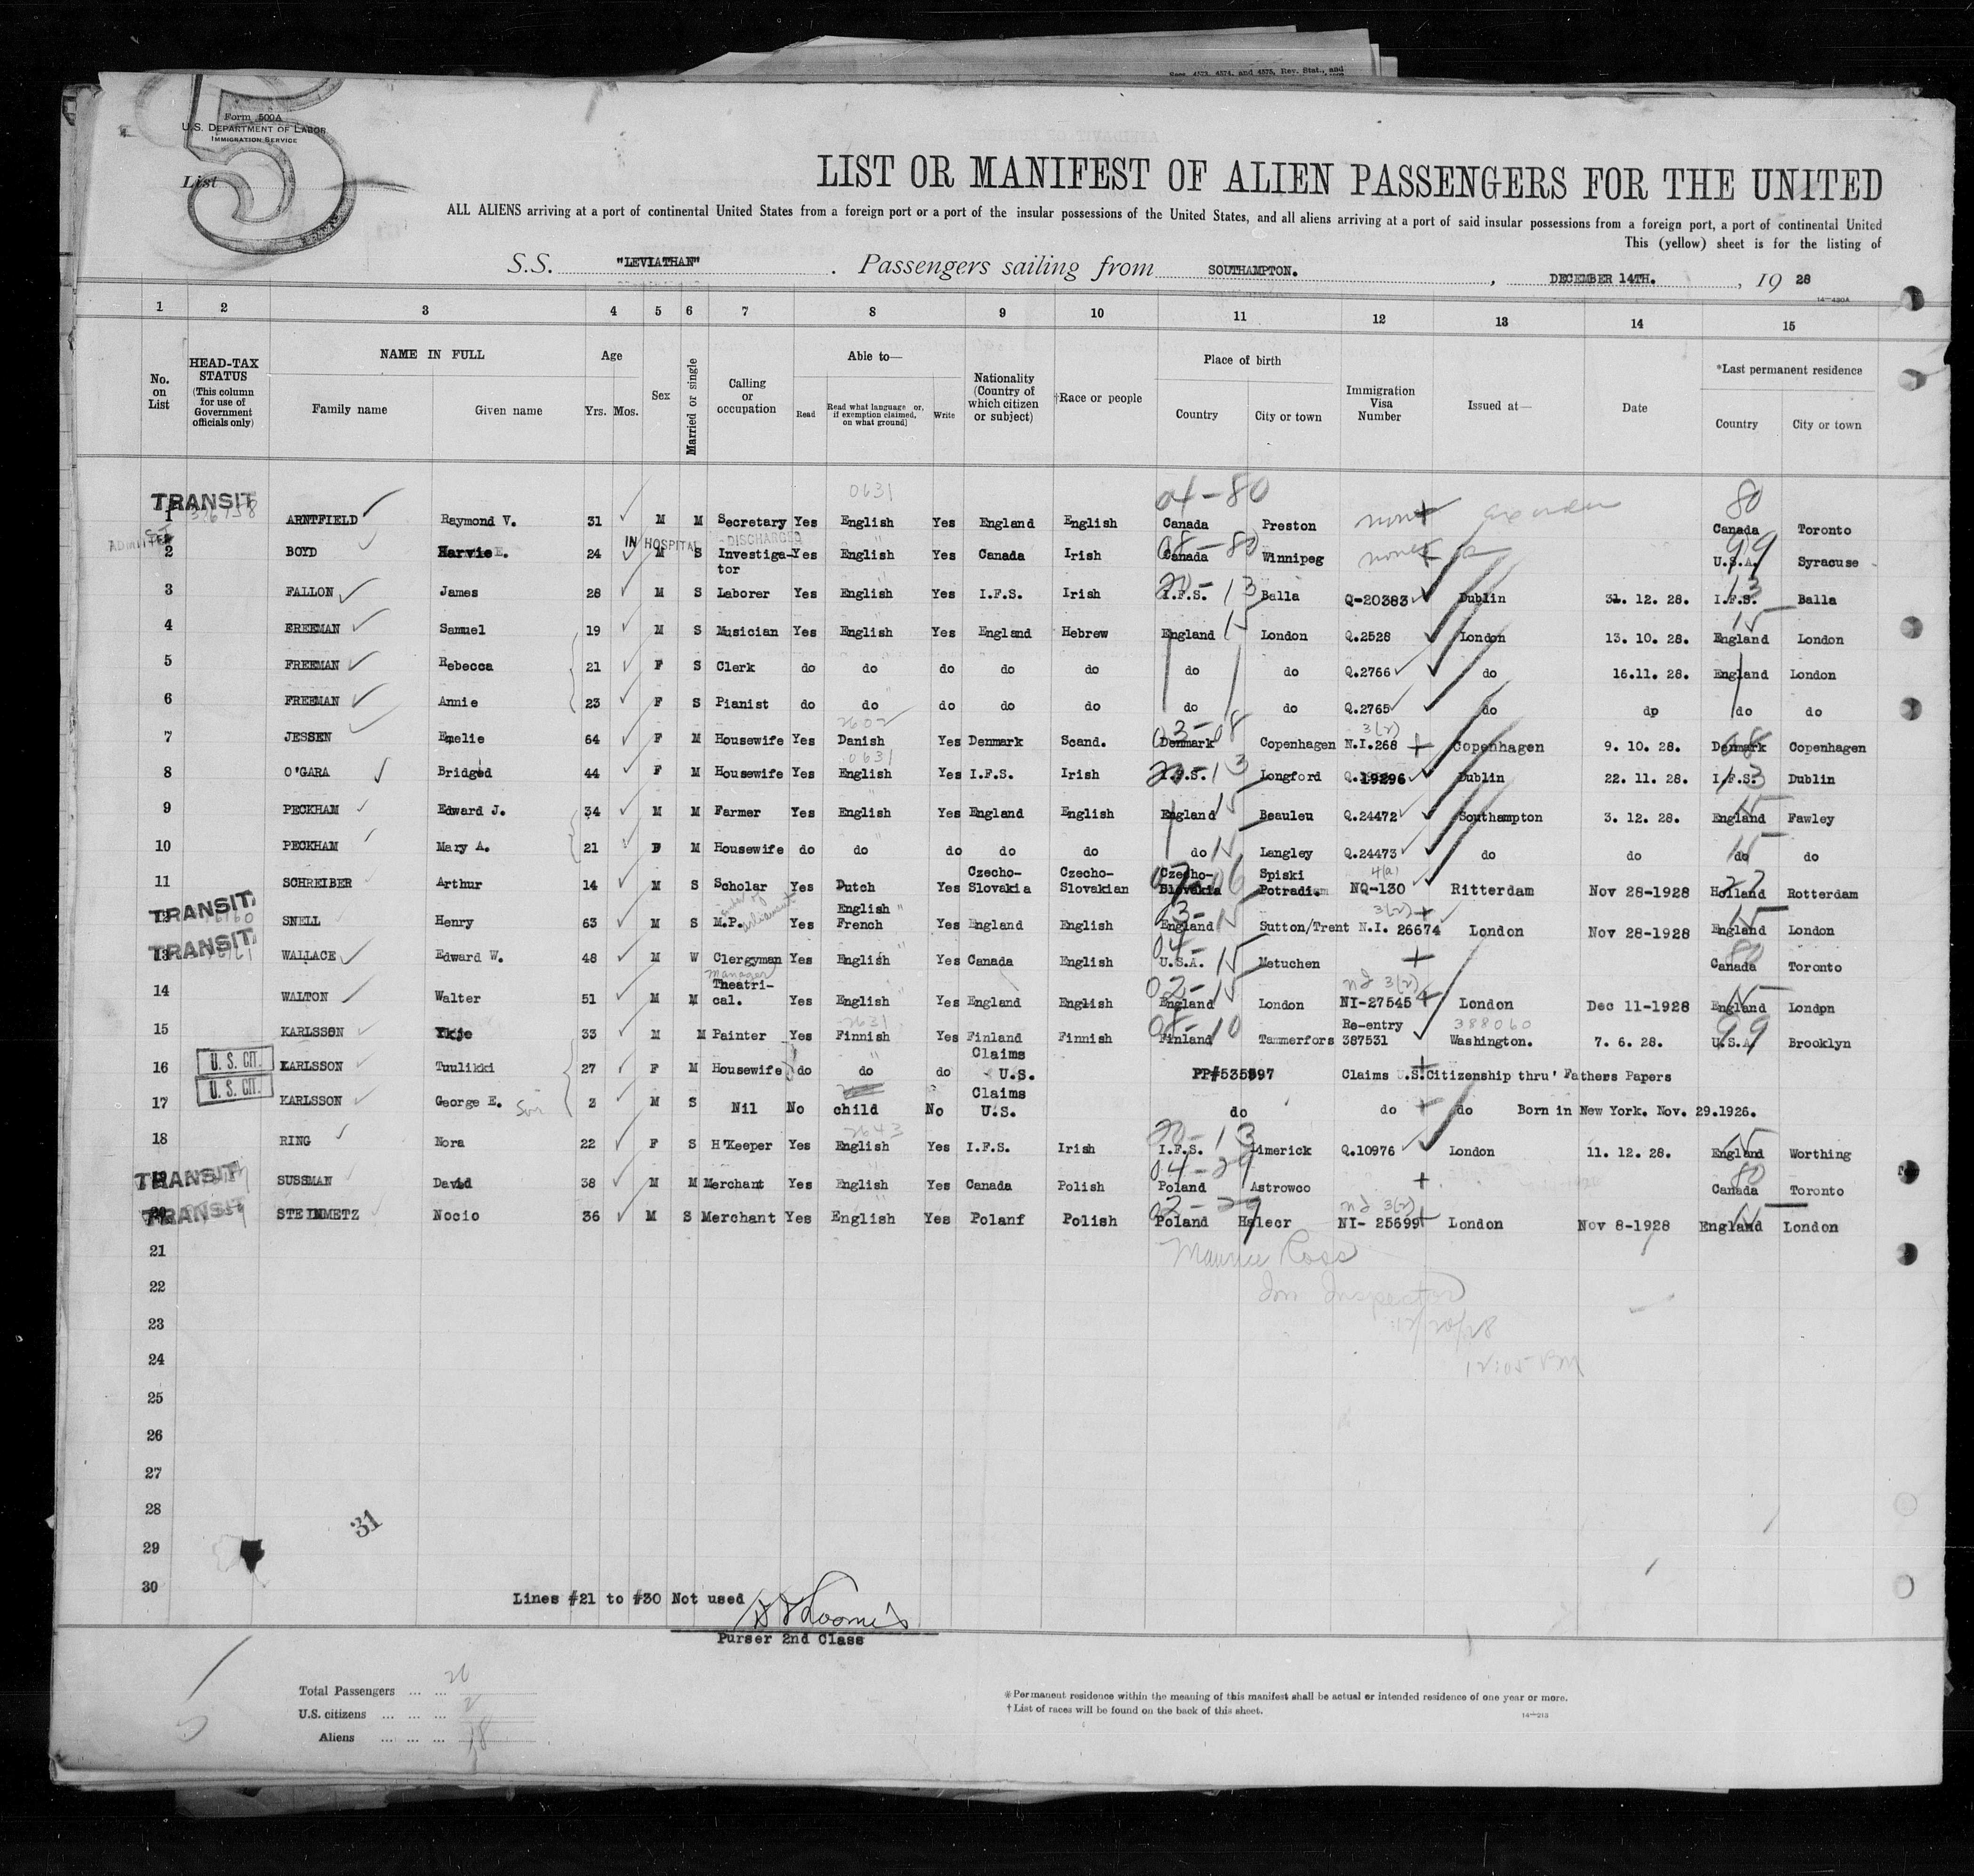 Secs. 4573, 4574, and 4575, Rev. Stat., and
5
Form 500A
U.S. DEPARTMENT OF LABOR
IMMIGRATION SERVICE
List
LIST OR MANIFEST OF ALIEN PASSENGERS FOR THE UNITED
ALL ALIENS arriving at a port of continental United States from a foreign port or a port of the insular possessions of the United States, and all aliens arriving at a port of said insular possessions from a foreign port, a port of continental United
This (yellow) sheet is for the listing of
S.S. "LEVIATHAN" . Passengers sailing from SOUTHAMPTON. , DECEMBER 14TH. , 19 28
14—430A
1 2 3 4 5 6 7 8 9 10 11 12 13 14 15
No. on List HEAD-TAX STATUS (This column for use of Government officials only) NAME IN FULL Family name Given name Age Yrs. Mos. Sex Married or single Calling or occupation Able to— Read Read what language or, if exemption claimed, on what ground) Write Nationality (Country of which citizen or subject) †Race or people Place of birth Country City or town Immigration Visa Number Issued at— Date *Last permanent residence Country City or town
0631 04-80 80
TRANSIT 1 ARNTFIELD Raymond V. 31 M M Secretary Yes English Yes England English Canada Preston none Canada Toronto
ADMITTED IN HOSPITAL DISCHARGED
2 BOYD Harvie E. 24 M S Investiga-tor Yes English Yes Canada Irish Canada Winnipeg none U.S.A. 99 Syracuse
3 FALLON James 28 M S Laborer Yes English Yes I.F.S. Irish I.F.S. 20-13 Balla Q-20383 Dublin 31. 12. 28. I.F.S. 13 Balla
4 FREEMAN Samuel 19 M S Musician Yes English Yes England Hebrew England 15 London Q.2528 London 13. 10. 28. England 15 London
5 FREEMAN Rebecca 21 F S Clerk do do do do do do do Q.2766 do 16.11. 28. England London
6 FREEMAN Annie 23 F S Pianist do do do do do do do Q.2765 do dp do do
2602 03-08 3(2)
7 JESSEN Emelie 64 F M Housewife Yes Danish Yes Denmark Scand. Denmark Copenhagen N.I.268 Copenhagen 9. 10. 28. Denmark 08 Copenhagen
0631
8 O'GARA Bridged 44 F M Housewife Yes English Yes I.F.S. Irish I.F.S. 20-13 Longford Q.19296 Dublin 22. 11. 28. I.F.S. 13 Dublin
9 PECKHAM Edward J. 34 M M Farmer Yes English Yes England English England 15 Beauleu Q.24472 Southampton 3. 12. 28. England 15 Fawley
10 PECKHAM Mary A. 21 F M Housewife do do do do do do 15 Langley Q.24473 do do do 15 do
4(a)
11 SCHREIBER Arthur 14 M S Scholar Yes Dutch Yes Czecho-Slovakia Czecho-Slovakian Czecho-Slovakia Spiski Potradiem NQ-130 Ritterdam Nov 28-1928 Holland 27 Rotterdam
3(2)
TRANSIT 12 SNELL Henry 63 M S M.P. Yes English French Yes England English England 15 Sutton/Trent N.I. 26674 London Nov 28-1928 England 15 London
TRANSIT 13 WALLACE Edward W. 48 M W Clergyman Yes English Yes Canada English U.S.A. 15 Metuchen Canada 80 Toronto
manager 02-15 3(2)
14 WALTON Walter 51 M M Theatri-cal. Yes English Yes England English England London NI-27545 London Dec 11-1928 England 15 Londpn
2631
15 KARLSSON Ykje 33 M M Painter Yes Finnish Yes Finland Finnish Finland Tammerfors Re-entry 387531 388060 Washington. 7. 6. 28. U.S.A. 99 Brooklyn
16 U. S. CIT. KARLSSON Tuulikki 27 F M Housewife do do do Claims U.S. PP#535597 Claims U.S.Citizenship thru' Fathers Papers
17 U. S. CIT. KARLSSON George E. Son 2 M S Nil No child No Claims U.S. do do do Born in New York. Nov. 29.1926.
2643 20-13
18 RING Nora 22 F S H'Keeper Yes English Yes I.F.S. Irish I.F.S. Limerick Q.10976 London 11. 12. 28. England 15 Worthing
04-29
TRANSIT 19 SUSSMAN David 38 M M Merchant Yes English Yes Canada Polish Poland Astrowco Canada 80 Toronto
02-29 3(2)
TRANSIT 20 STEINMETZ Nocio 36 M S Merchant Yes English Yes Polanf Polish Poland Halecr NI- 25699 London Nov 8-1928 England 15 London
21 Maurice Ross
22 Imm Inspector
23 12/20/28
24 12:05 PM
25
26
27
28
31
29
30
Lines #21 to #30 Not used
Purser 2nd Class
Total Passengers ... ... 20
U.S. citizens ... ... ... 2
Aliens ... ... ... 18
*Permanent residence within the meaning of this manifest shall be actual or intended residence of one year or more.
†List of races will be found on the back of this sheet.
14—213